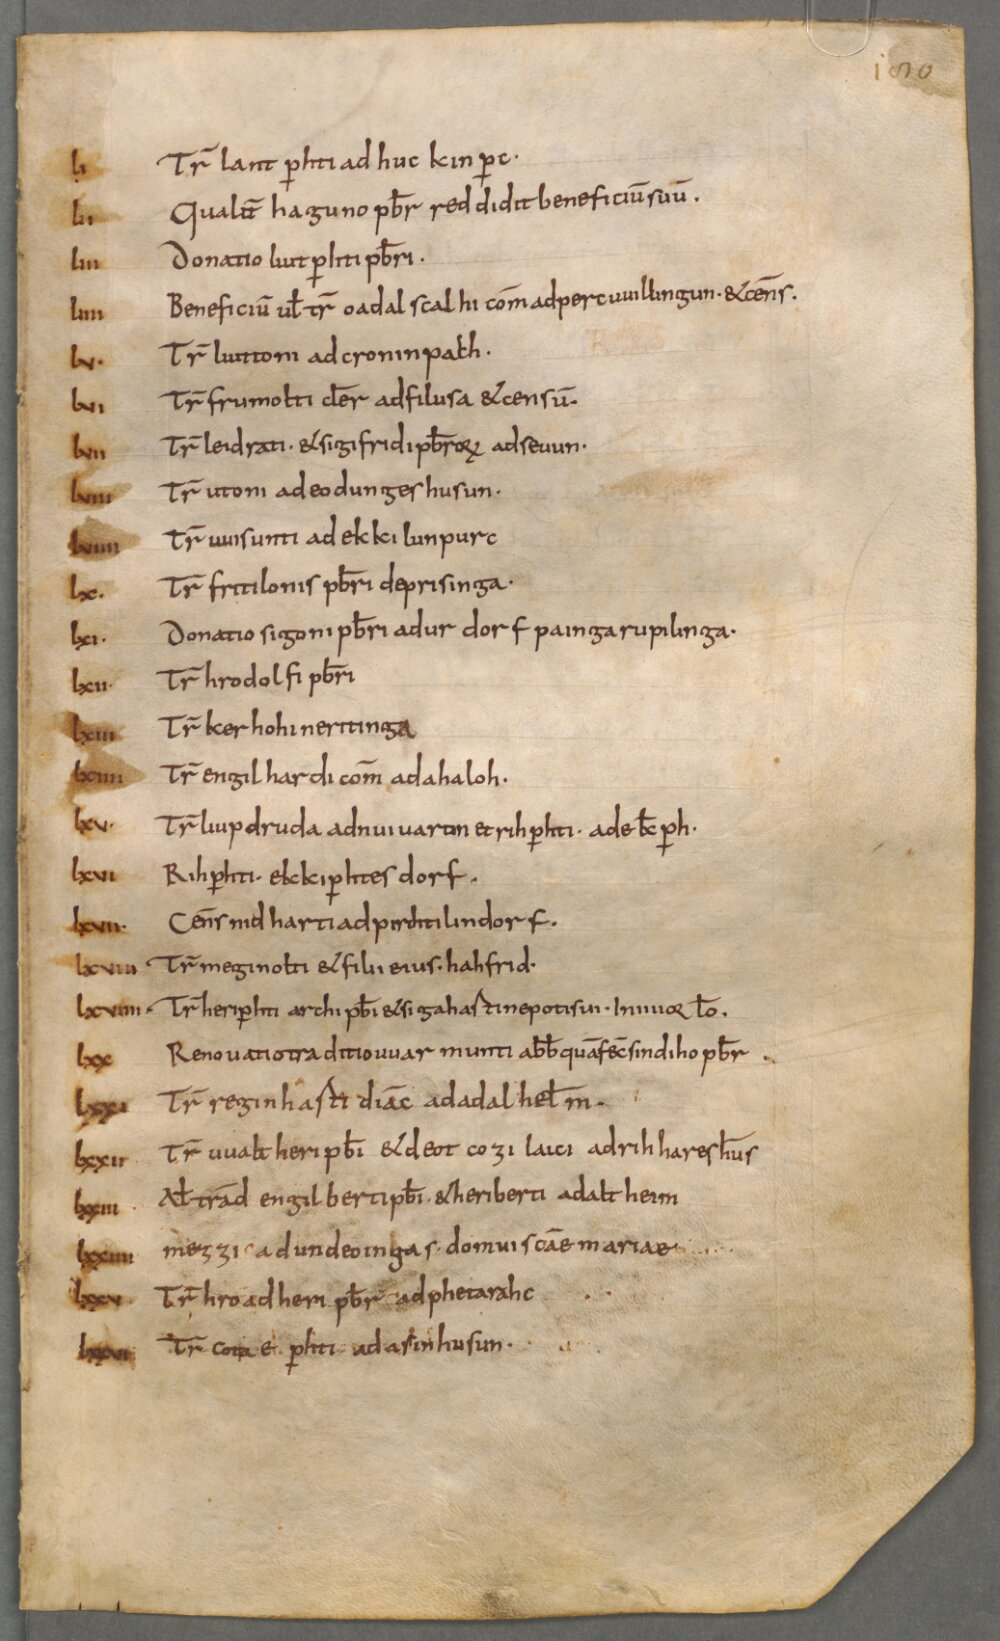 li Tr̄ lantp̱hti ad huckinp̱c·
lii Qualit̄ haguno pb̄r reddidit beneficiū suū.
liii Donatio liutp̱hti pb̄ri.
liiii Beneficiū ul̄ tr̄ oadalscalhi com̄ ad percuuillingun· & cēns.
lv· Tr̄ liuttoni ad croninpath.
lvi Tr̄ frumolti cl̄er ad filusa & censū·
lvii Tr̄ leidrati· & sigifridi pb̄roꝝ ad seuun·
lviii Tr̄ utoni ad eodungeshusun·
lviiii Tr̄ uuisunti ad ekkilunpurc
lx· Tr̄ fritilonis pb̄ri de prisinga·
lxi· Donatio sigoni pb̄ri ad urdorf painga rupilinga·
lxii· Tr̄ hrodolfi pb̄ri
lxiii Tr̄ kerhohi neritinga
lxiiii Tr̄ engilhardi com̄ ad ahaloh·
lxv· Tr̄ liupdruda ad niuiuarun et rihp̱hti·
lxvi Rihp̱hti· ekkip̱htesdorf.
lxvii· Cēns nidharti ad pirhtilindorf.
lxviii· Tr̄ meginolti & filii eius· hahfrid·
lxviiii· Tr̄ herip̱hti archipb̄i & sigahasti nepoti sui·
lxx Renouatio traditio uuarmunti abb̄ quā fec̄ sindiho pb̄r
lxxi Tr̄ reginhasti diāc ad adalhel̄m·
lxxii· Tr̄ uualtheri pb̄i & deotcozi laici ad rihhareshūs
lxxiii· Al̄ trād engilberti pb̄i· & heriberti ad altheim
lxxiiii mezzi ad undeoingas· domui scāe mariae
lxxv· Tr̄ hroadheri pb̄r ad phetarahc
lxxvi Tr̄ p̱hti ad asinhusun·